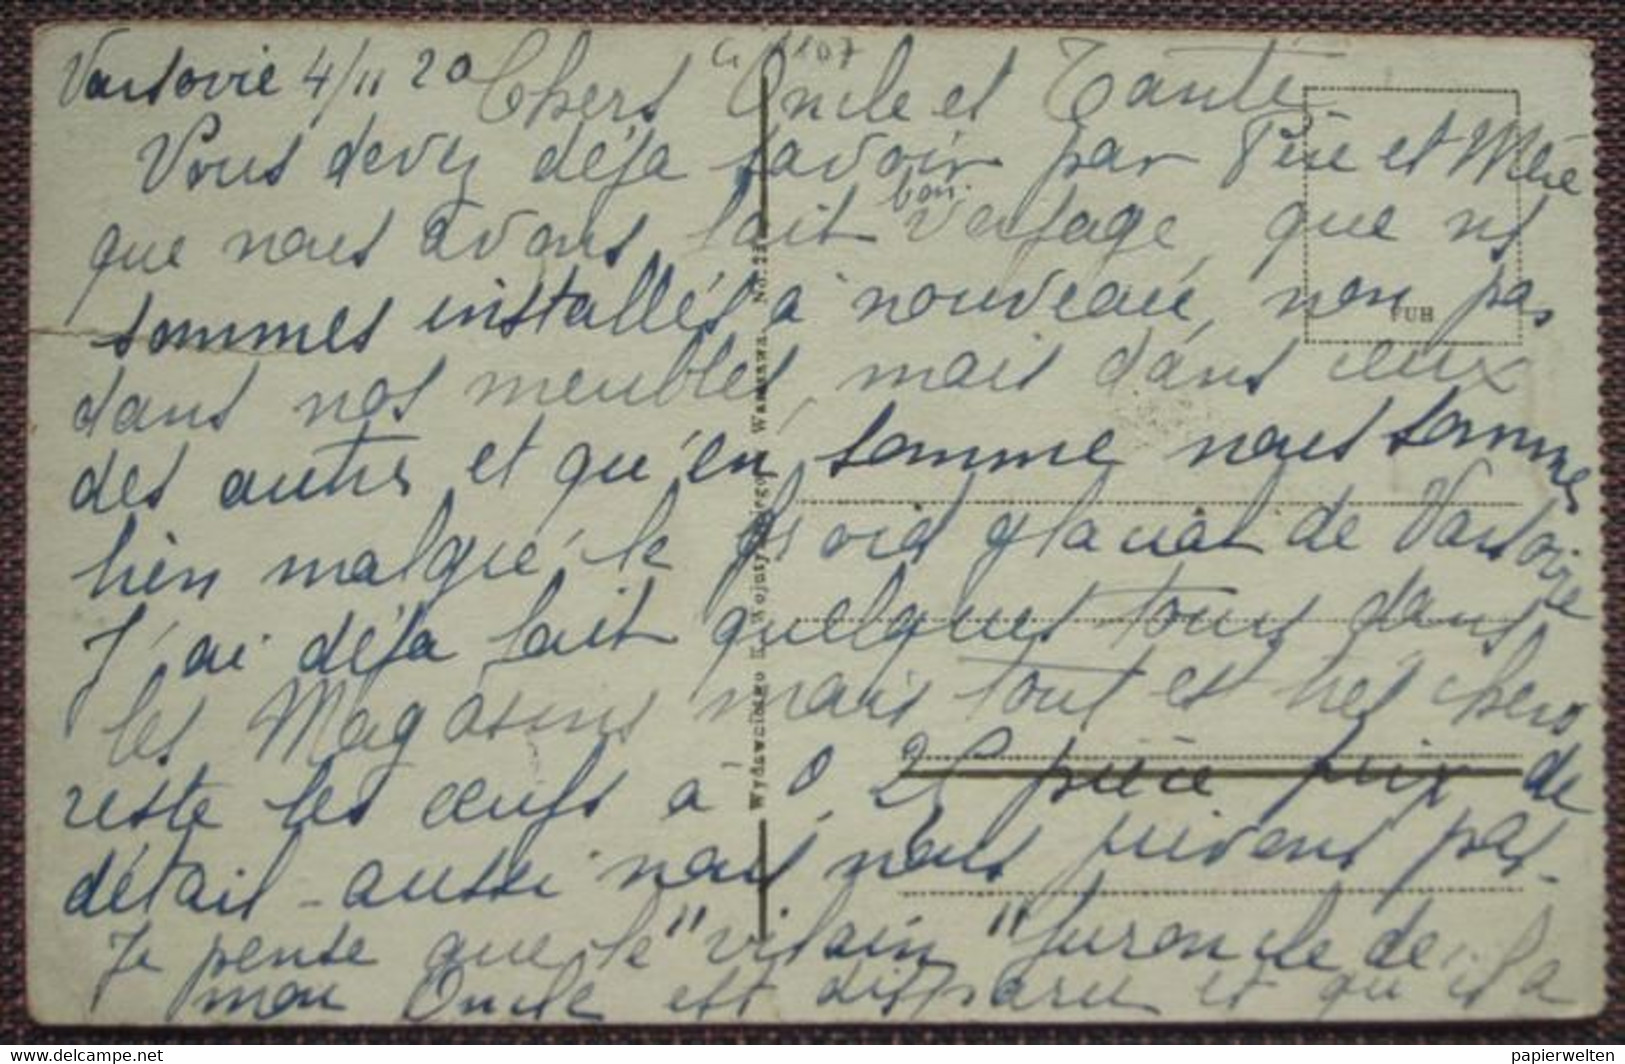 Varsovie 4/11 20 Chers Oncle et Tante
1107
Vous devez déja savoir par Père et Mère
bon
que nous avons fait voyage, que ns
sommes installés à nouveau, non pas
dans nos meubles, mais dans ceux
des autres et qu'en somme nous sommes
bien malgré le froid glacial de Varsovie
J'ai déja fait quelques tours dans
les Magasins mais tout est très chers
reste les œufs a 0,25 pièce prix de
détail - aussi nous nous privons pas -
Je pense que le "vilain" furoncle de
mon Oncle est disparu et qu'il a
FUH
Wydawnictwo K. Wojutyńskiego, Warszawa. No.
papierwelten
delcampe.net